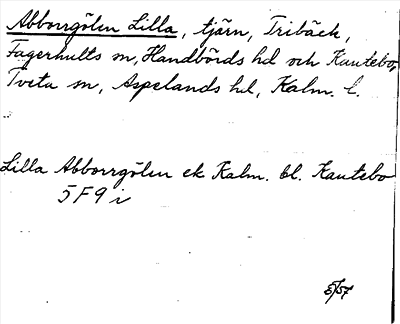 Abborrgölen Lilla, tjärn, Tribäck,
Fagerhults sn, Handbörds hd och Kantebo,
Tveta sn, Aspelands hd, Kalm. l.
Lilla Abborrgölen ek Kalm. bl. Kantebo
5F9i
E/57